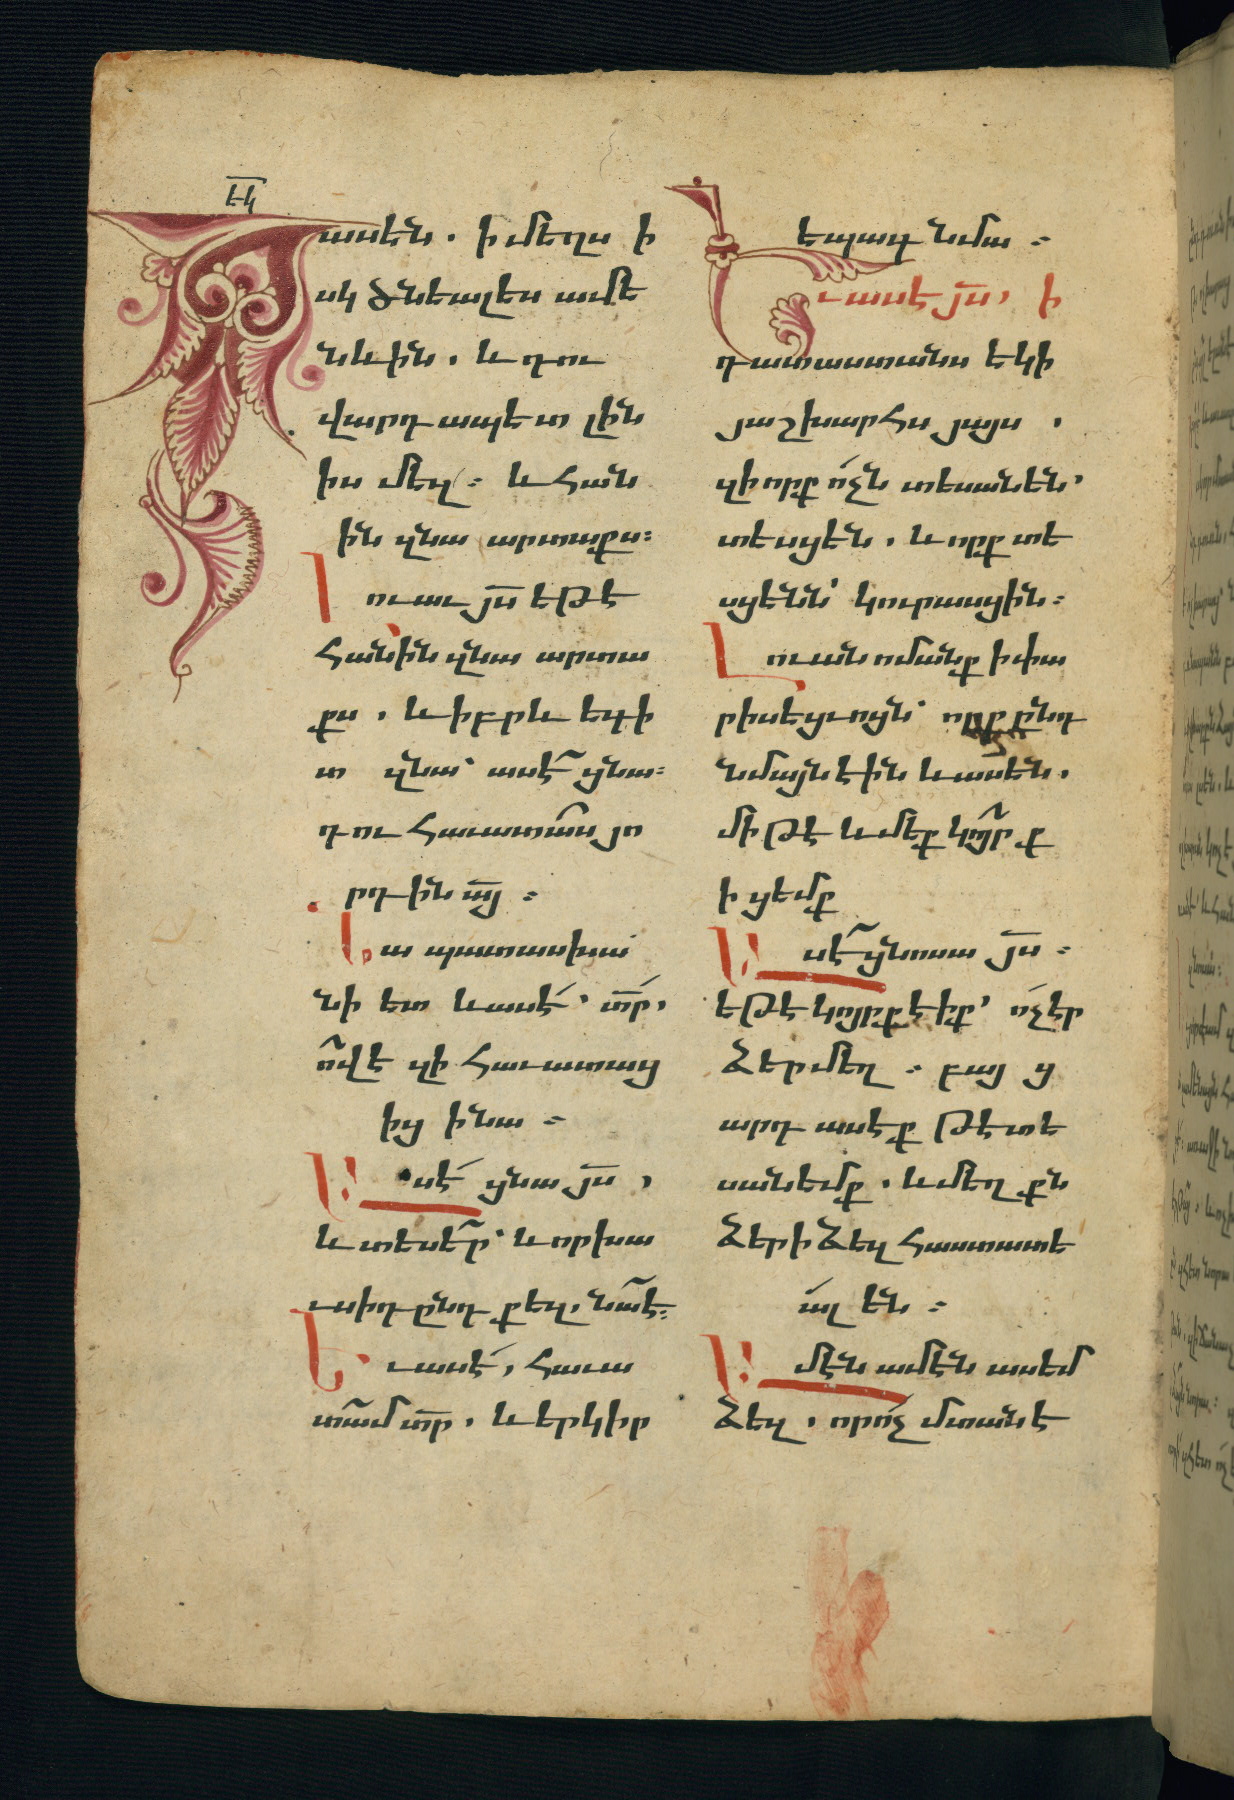 էկ
ասեն. ի մեղս ի
սկ ծնեալես ամե
նևին. և դու
վարդապետ լին
իս մեզ: և հան
ին զնա արտաքս:
Լուաւ յս եթե
հանին զնա արտա
քս. և իբրև եգի
տ զնա՝ ասէ ցնա:
դու հաւատաս յո
րդին այ:
Նա պատասխա
նի ետ և ասէ՛ տր,
ո՞վ է զի հաւատաց
ից ի նա:
Ասէ ցնա յս,
և տեսեր՝ և որ խաւ
սիդ ընդ քեզ, նա է:
Եւ ասէ, հաւա
տամ տր. և երկիր
եպագ նմա:
Եւ ասե յս, ի
դատաստանս եկի
յաշխարհս յայս,
զի որք ոչն տեսանեն՝
տեսցեն. և որք տե
սցենն՝ կուրասցին:
Լուան ոմանք ի փա
րիսեցւոցն՝ որք ընդ
նմայն էին և ասեն.
մի թէ և մեք կոյրք
իցեմք
Ասէ ցնոսա յս:
եթե կոյրք էիք՝ ոչ էր
ձեր մեղ: բայց
արդ ասէք թէ տե
սանեմք. և մեղքն
ձեր ի ձեզ հաստատե
ալ են:
Ամէն ամէն ասեմ
ձեզ. որ ոչ մտանէ